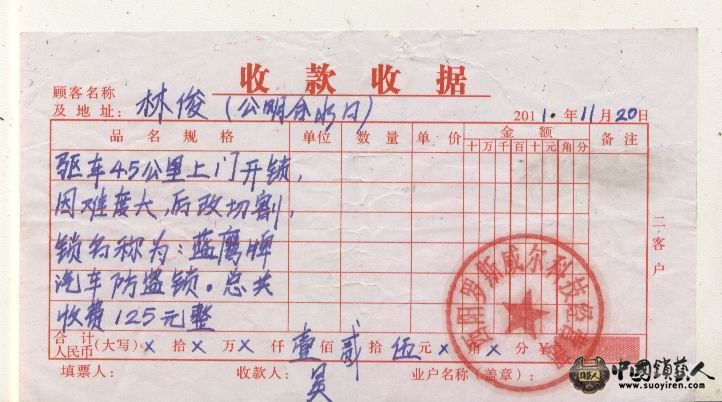 收款收据
顾客名称
及地址: 林俊(公明合水口)
2011.年11月20日
品名规格 单位 数量 单价 金额 备注
十万千百十元角分
驱车45公里上门开锁,
因难度大,后改切割,
锁名称为:蓝鹰牌
汽车防盗锁。总共
收费125元整
二客户
合计
人民币(大写)×拾×万×仟壹佰贰拾伍元×角×分¥
填票人: 收款人:吴 业户名称(盖章):
罗斯威尔科技经
中國鎖藝人
www.suoyiren.com